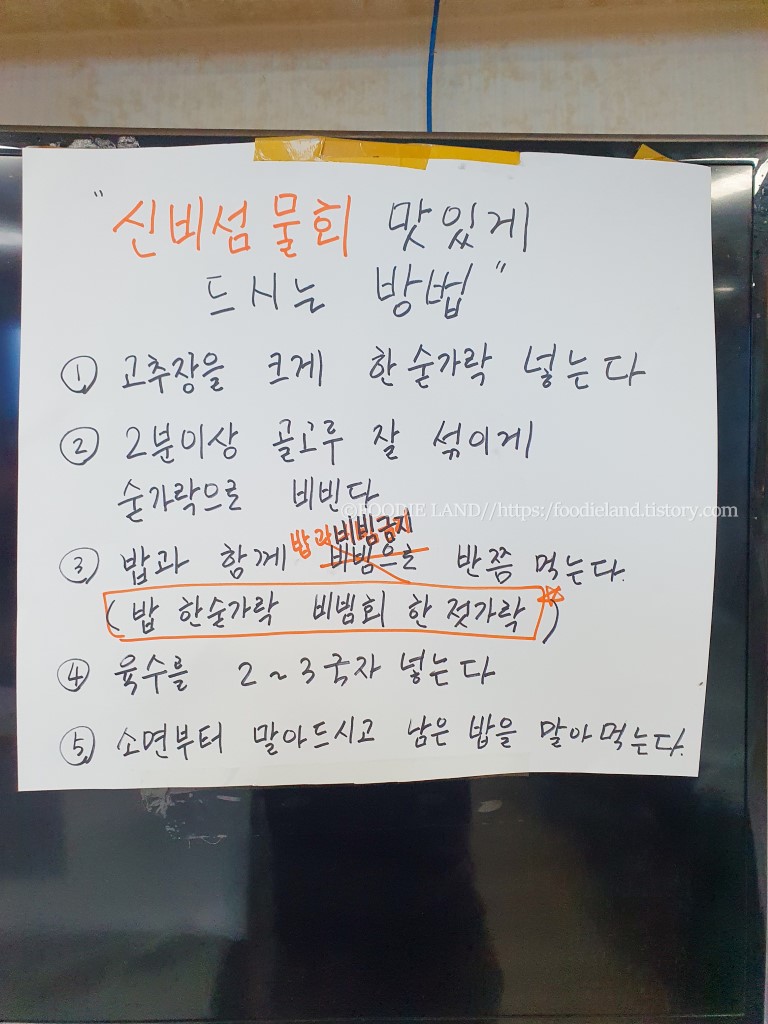 "신비섬 물회 맛있게
드시는 방법"
① 고추장을 크게 한 숟가락 넣는다
② 2분이상 골고루 잘 섞이게
숟가락으로 비빈다
©FOODIE LAND//https://foodieland.tistory.com
밥과 비빔금지
③ 밥과 함께 비빔으로 반쯤 먹는다.
(밥 한숟가락 비빔회 한 젓가락*)
④ 육수를 2~3국자 넣는다
⑤ 소면부터 말아드시고 남은 밥을 말아먹는다.